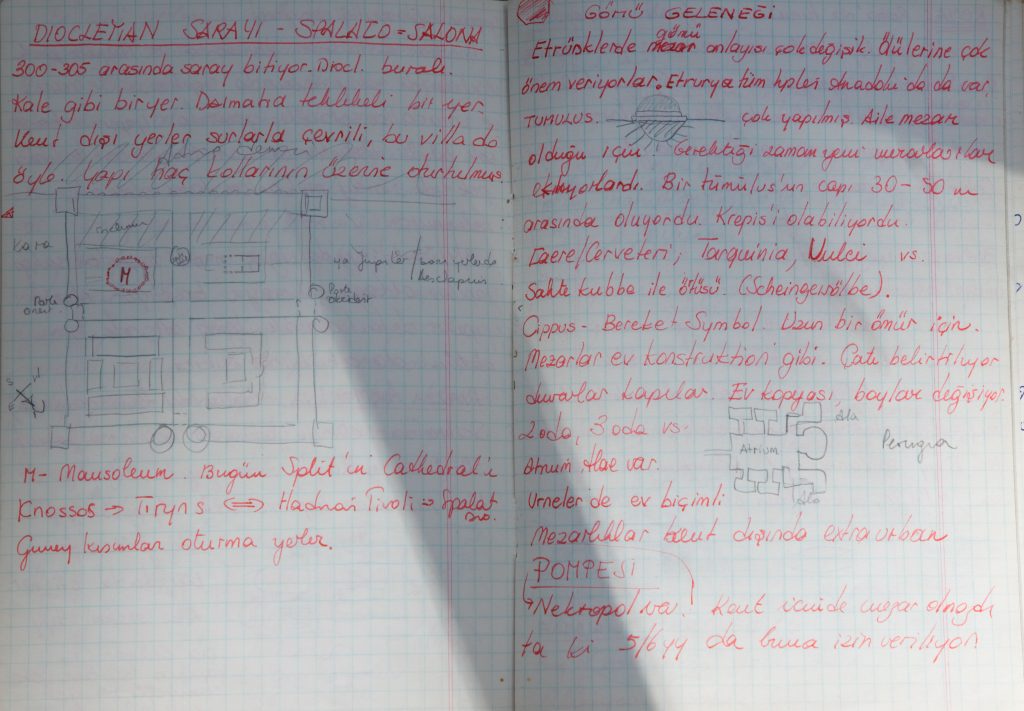 DIOCLETIAN SARAYI - SPALATO = SALONA
300-305 arasında saray bitiyor. Diocl. buralı.
Kale gibi bir yer. Dalmatia tehlikeli bir yer.
Kent dışı yerler surlarla çevrili, bu villa da
öyle. Yapı haç kollarının üzerine oturtulmuş.
Kara
M
ya Jupiter /
M- Mausoleum. Bugün Split'in Cathedral'i
Knossos → Tiryns ⟺ Hadrian Tivoli → Spalat
Güney kısımlar oturma yerler.
GÖMÜ GELENEĞİ
gömü
Etrüsklerde anlayışı çok değişik. Ölülerine çok
önem veriyorlar. Etrurya tüm tipleri Anadolu'da da var.
TUMULUS. çok yapılmış Aile mezar
olduğu için. Gerektiği zaman yeni mezar
ekliyorlardı. Bir tümülüs'ün çapı 30-50 m
arasında oluyordu. Krepis'i olabiliyordu.
Caere/Cerveteri, Tarquinia, Vulci vs.
Sahte kubbe ile örtüsü (Scheingewölbe).
Cippus - Bereket Symbol. Uzun bir ömür için.
Mezarlar ev konstruktion gibi. Çatı belirtiliyor
duvarlar kapılar. Ev kopyası, boylar değişiyor.
2 oda, 3 oda vs.
Ala
Atrium
Perugia
Atrium, Alae var.
Ala
Urneler de ev biçimli
Mezarlıklar kent dışında extra urban
POMPESİ
Nekropol var. Kent içinde mezar olmazdı
ta ki 5/6 yy da buna izin veriliyor.